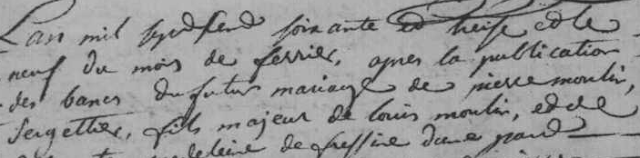 L'an mil sept cent soixante et treize et le
neuf du mois de fevrier, apres la publication
des bancs du futur mariage de pierre moulin,
sergettier, fils majeur de louis moulin, et de
deleine de fressine d'une part